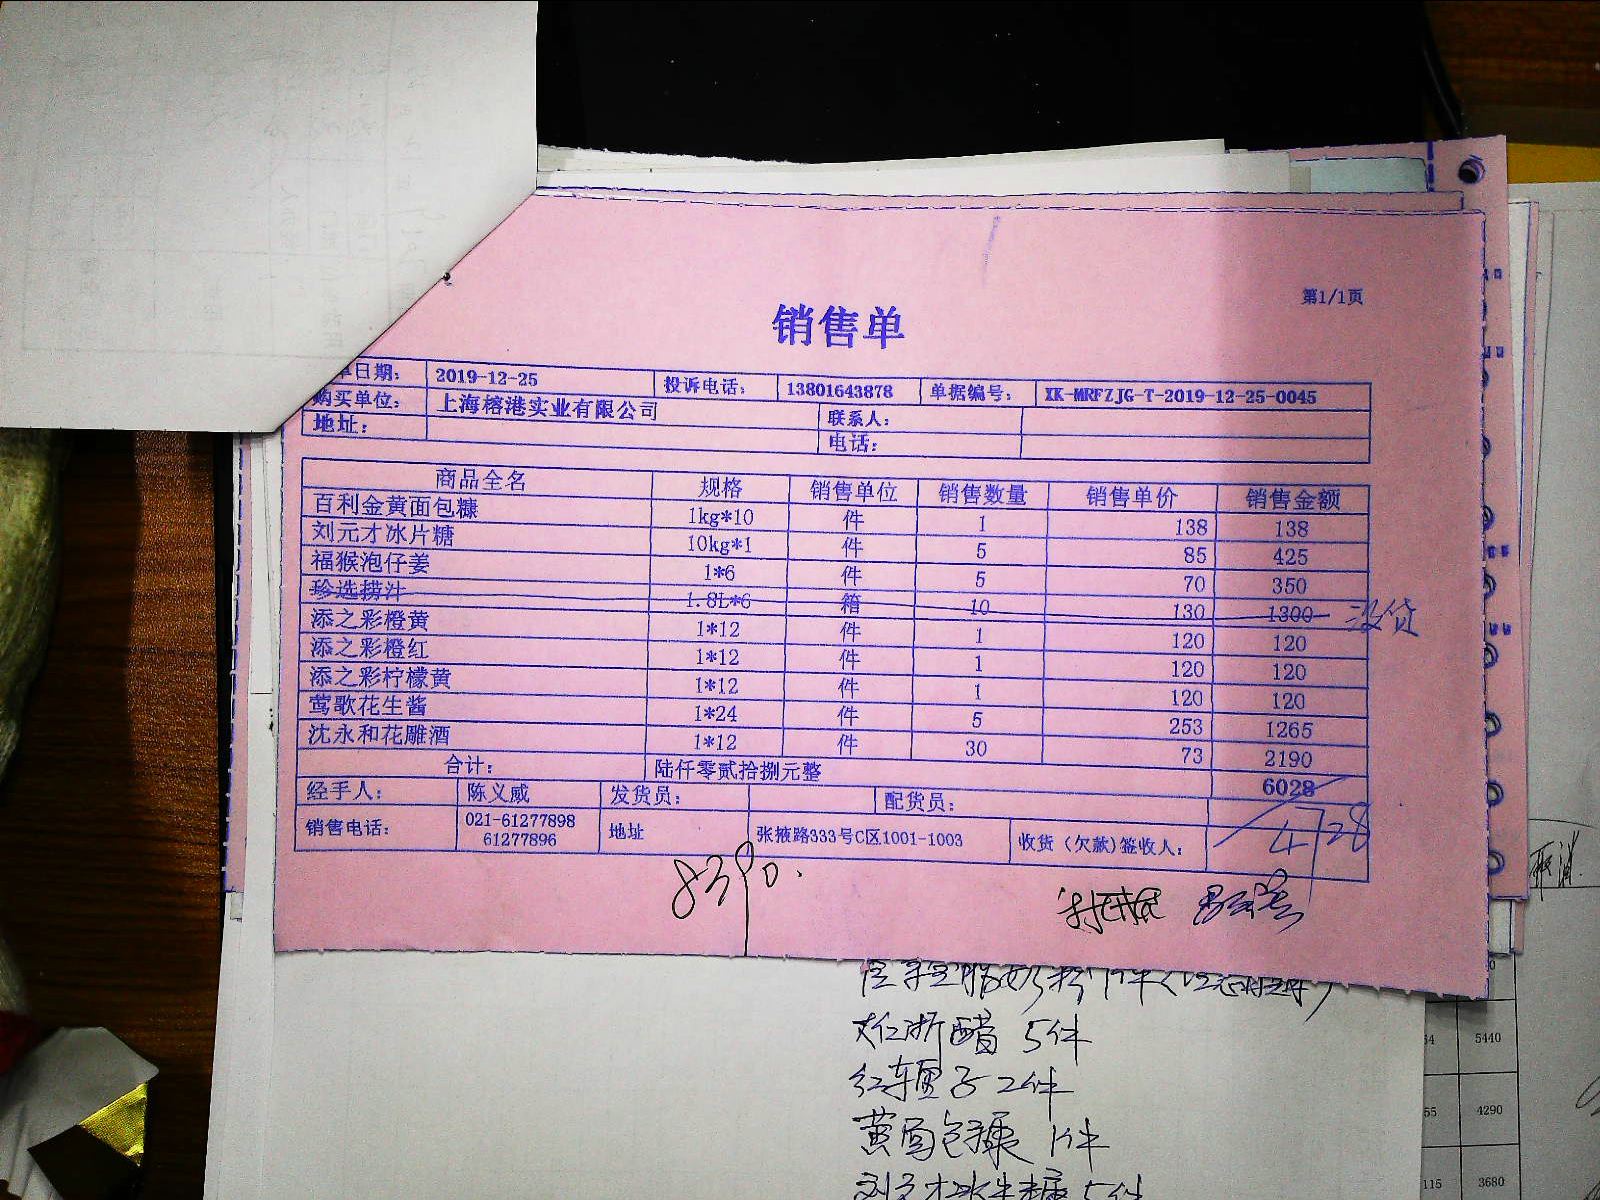 第1/1页
销售单
单日期： 2019-12-25 投诉电话： 13801643878 单据编号： XK-MRFZJG-T-2019-12-25-0045
购买单位： 上海榕港实业有限公司 联系人：
地址： 电话：
商品全名 规格 销售单位 销售数量 销售单价 销售金额
百利金黄面包糠 1kg*10 件 1 138 138
刘元才冰片糖 10kg*1 件 5 85 425
福猴泡仔姜 1*6 件 5 70 350
珍选捞汁 1.8L*6 箱 10 130 1300 没货
添之彩橙黄 1*12 件 1 120 120
添之彩橙红 1*12 件 1 120 120
添之彩柠檬黄 1*12 件 1 120 120
莺歌花生酱 1*24 件 5 253 1265
沈永和花雕酒 1*12 件 30 73 2190
合计： 陆仟零贰拾捌元整 6028
经手人： 陈义威 发货员： 配货员：
销售电话： 021-61277898 61277896 地址 张掖路333号C区1001-1003 收货（欠款)签收人： 4728
大红浙醋 5件
黄面包糠 1件
刘元才冰片糖 5件
5440
55 4290
115 3680